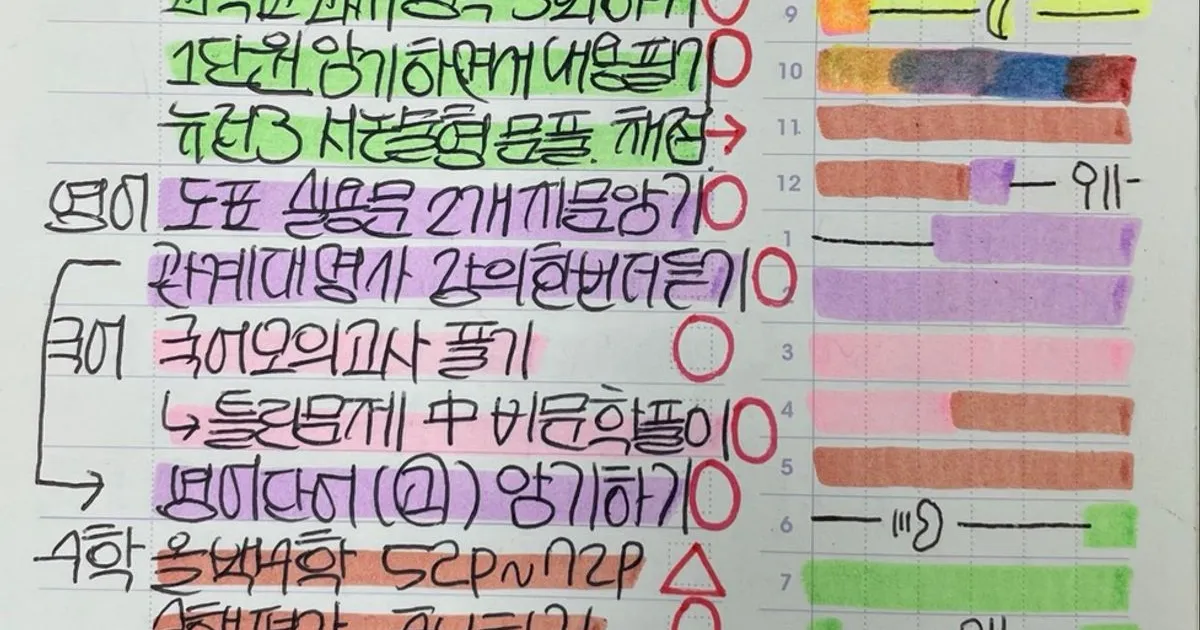 1단원 암기하며개 내용필기
뉴런3 서논술형 문풀. 채점 →
영어 도표 실용문 2개 지문암기
관계대명사 강의한번더듣기
국어 국어모의고사 풀기
↳ 틀린문제 中 비문학풀이
영어단어 (고) 암기하기
수학 올백수학 52p~72p
9
10
11
12
1
2
3
4
5
6
7